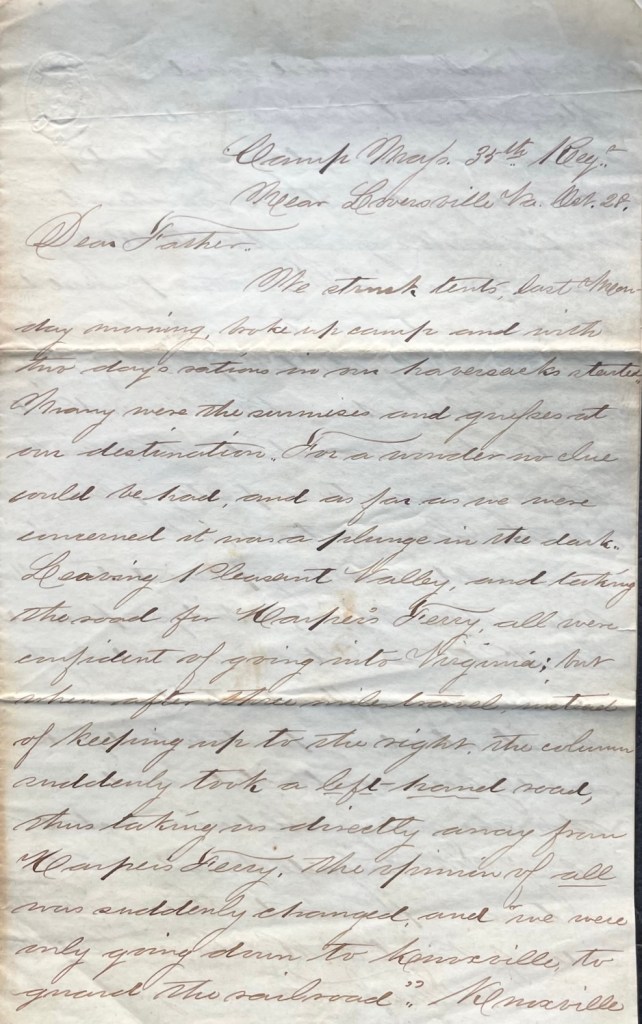 Camp Mass. 35th Regt.
Near Loversville Va. Oct. 28.
Dear Father..
We struck tents, last Mon-
day morning, broke up camp and with
two days rations in our haversacks started
Many were the surmises and guesses at
our destination. For a wonder no clue
could be had, and as far as we were
concerned it was a plunge in the dark..
Leaving Pleasant Valley, and taking
the road for Harper's Ferry, all were
confident of going into Virginia; but
when after three miles travel, instead
of keeping up to the right, the column
suddenly took a left-hand road,
thus taking us directly away from
Harper's Ferry. The opinion of all
was suddenly changed, and "we were
only going down to Knoxville, to
guard the railroad". Knoxville